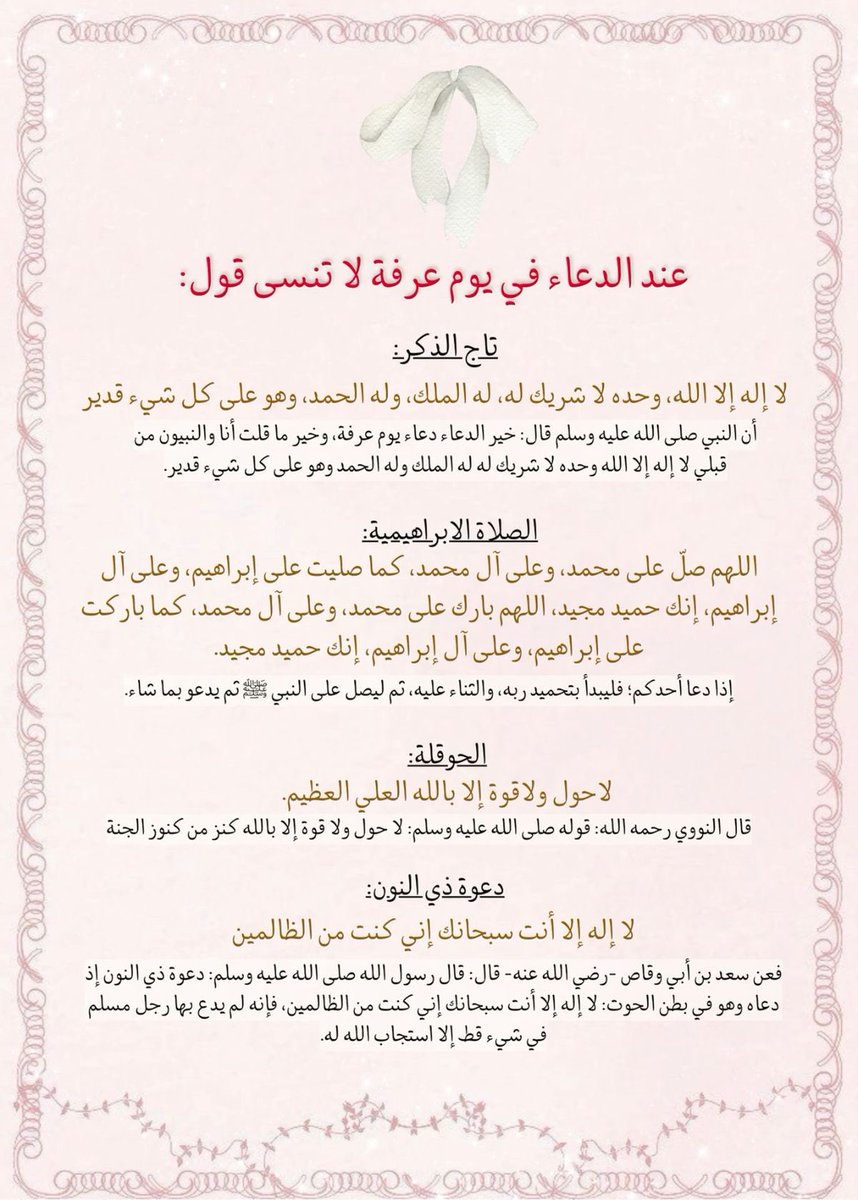 عند الدعاء في يوم عرفة لا تنسى قول:
تاج الذكر:
لا إله إلا الله، وحده لا شريك له، له الملك، وله الحمد، وهو على كل شيء قدير
أن النبي صلى الله عليه وسلم قال: خير الدعاء دعاء يوم عرفة، وخير ما قلت أنا والنبيون من
قبلي لا إله إلا الله وحده لا شريك له له الملك وله الحمد وهو على كل شيء قدير.
الصلاة الابراهيمية:
اللهم صلّ على محمد، وعلى آل محمد، كما صليت على إبراهيم، وعلى آل
إبراهيم، إنك حميد مجيد، اللهم بارك على محمد، وعلى آل محمد، كما باركت
على إبراهيم، وعلى آل إبراهيم، إنك حميد مجيد.
إذا دعا أحدكم؛ فليبدأ بتحميد ربه، والثناء عليه، ثم ليصل على النبي ﷺ ثم يدعو بما شاء.
الحوقلة:
لاحول ولاقوة إلا بالله العلي العظيم.
قال النووي رحمه الله: قوله صلى الله عليه وسلم: لا حول ولا قوة إلا بالله كنز من كنوز الجنة
دعوة ذي النون:
لا إله إلا أنت سبحانك إني كنت من الظالمين
فعن سعد بن أبي وقاص -رضي الله عنه- قال: قال رسول الله صلى الله عليه وسلم: دعوة ذي النون إذ
دعاه وهو في بطن الحوت: لا إله إلا أنت سبحانك إني كنت من الظالمين، فإنه لم يدع بها رجل مسلم
في شيء قط إلا استجاب الله له.